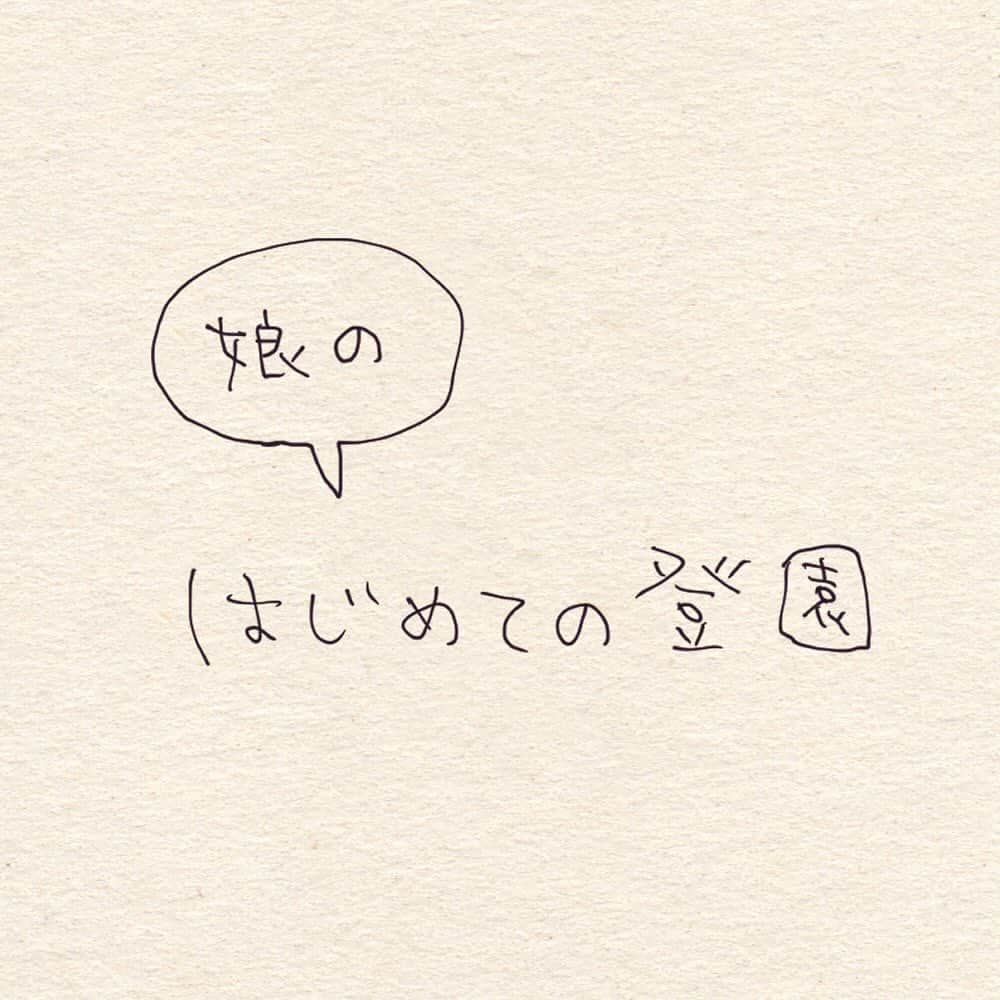 娘の
はじめての登園